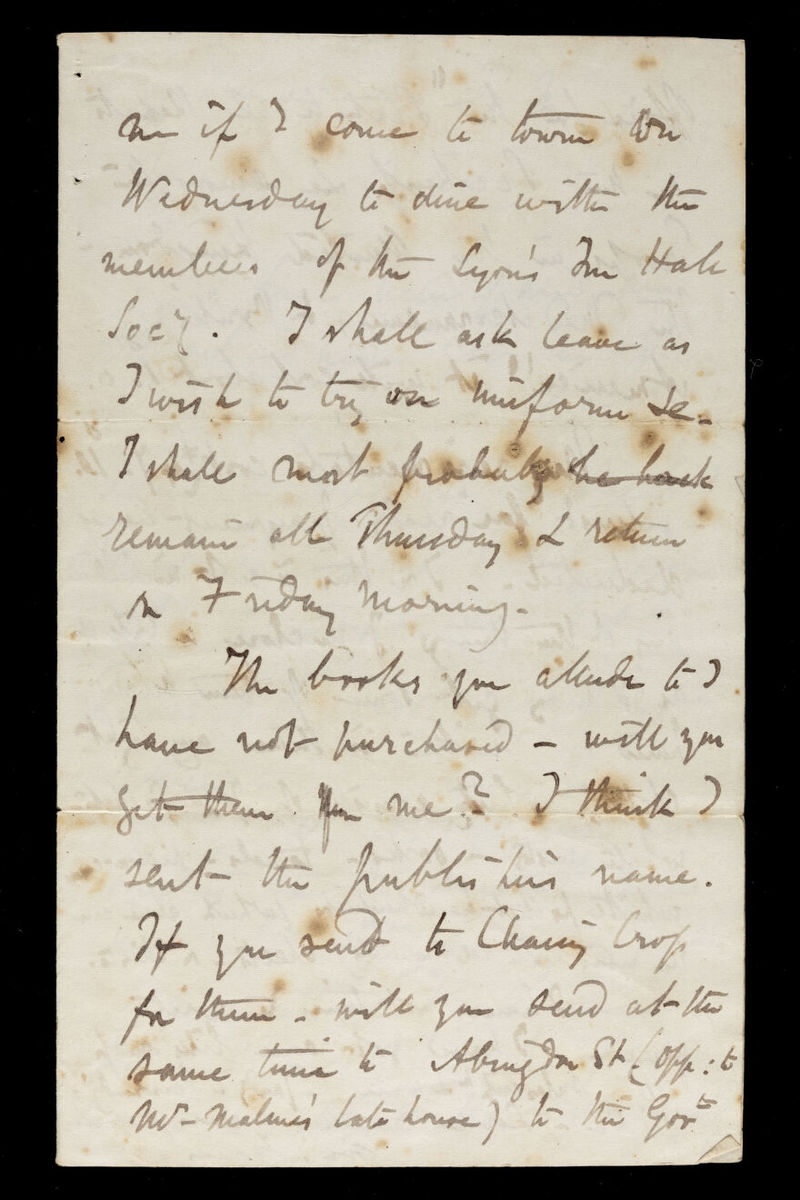 me if I come to town on
Wednesday to dine with the
members of the Lyon's Inn Hall
Socy. I shall ask leave as
I wish to try on uniform &c-
I shall most probably be back
remain all Thursday & return
on Friday morning-
The books you allude to I
have not purchased - will you
get them for me? I think I
sent the publishers name.
If you send to Charing Cross
for them - will you send at the
same time to Abingdon St (opp: to
late house) to the Govt